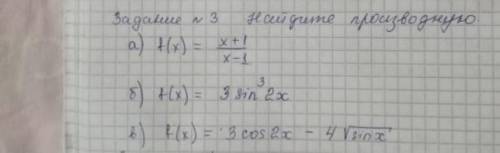 Задание № 3 Найдите производную.
а) f(x) = x+1/x-1
б) f(x) = 3 sin³2x
в) f(x) = 3 cos2x - 4√sinx